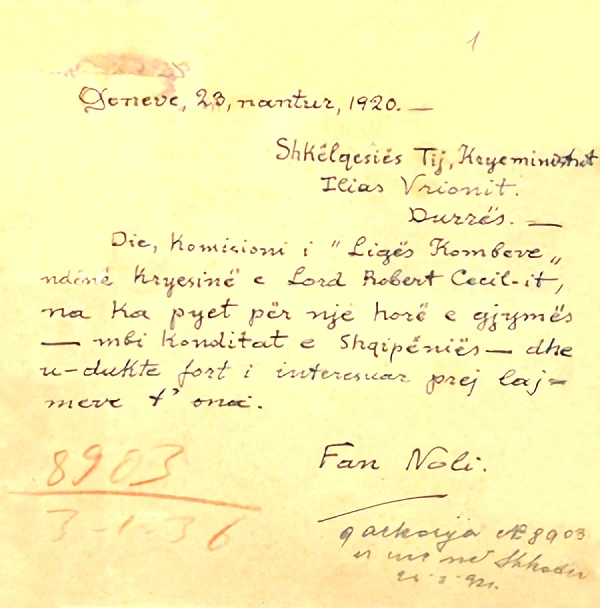 1
Geneve, 23, nantur, 1920. —
Shkëlqesiës Tij, Kryeministrit
Ilias Vrionit.
Durrës. —
Die, Komisioni i "Ligës Kombeve„
ndënë Kryesinë e Lord Robert Cecil-it,
na ka pyet për një horë e gjymës
— mbi konditat e Shqipëniës — dhe
u-dukte fort i interesuar prej laj=
meve t' ona.
Fan Noli.
8903
3-1-36
qarkorja № 8903
Shkoder